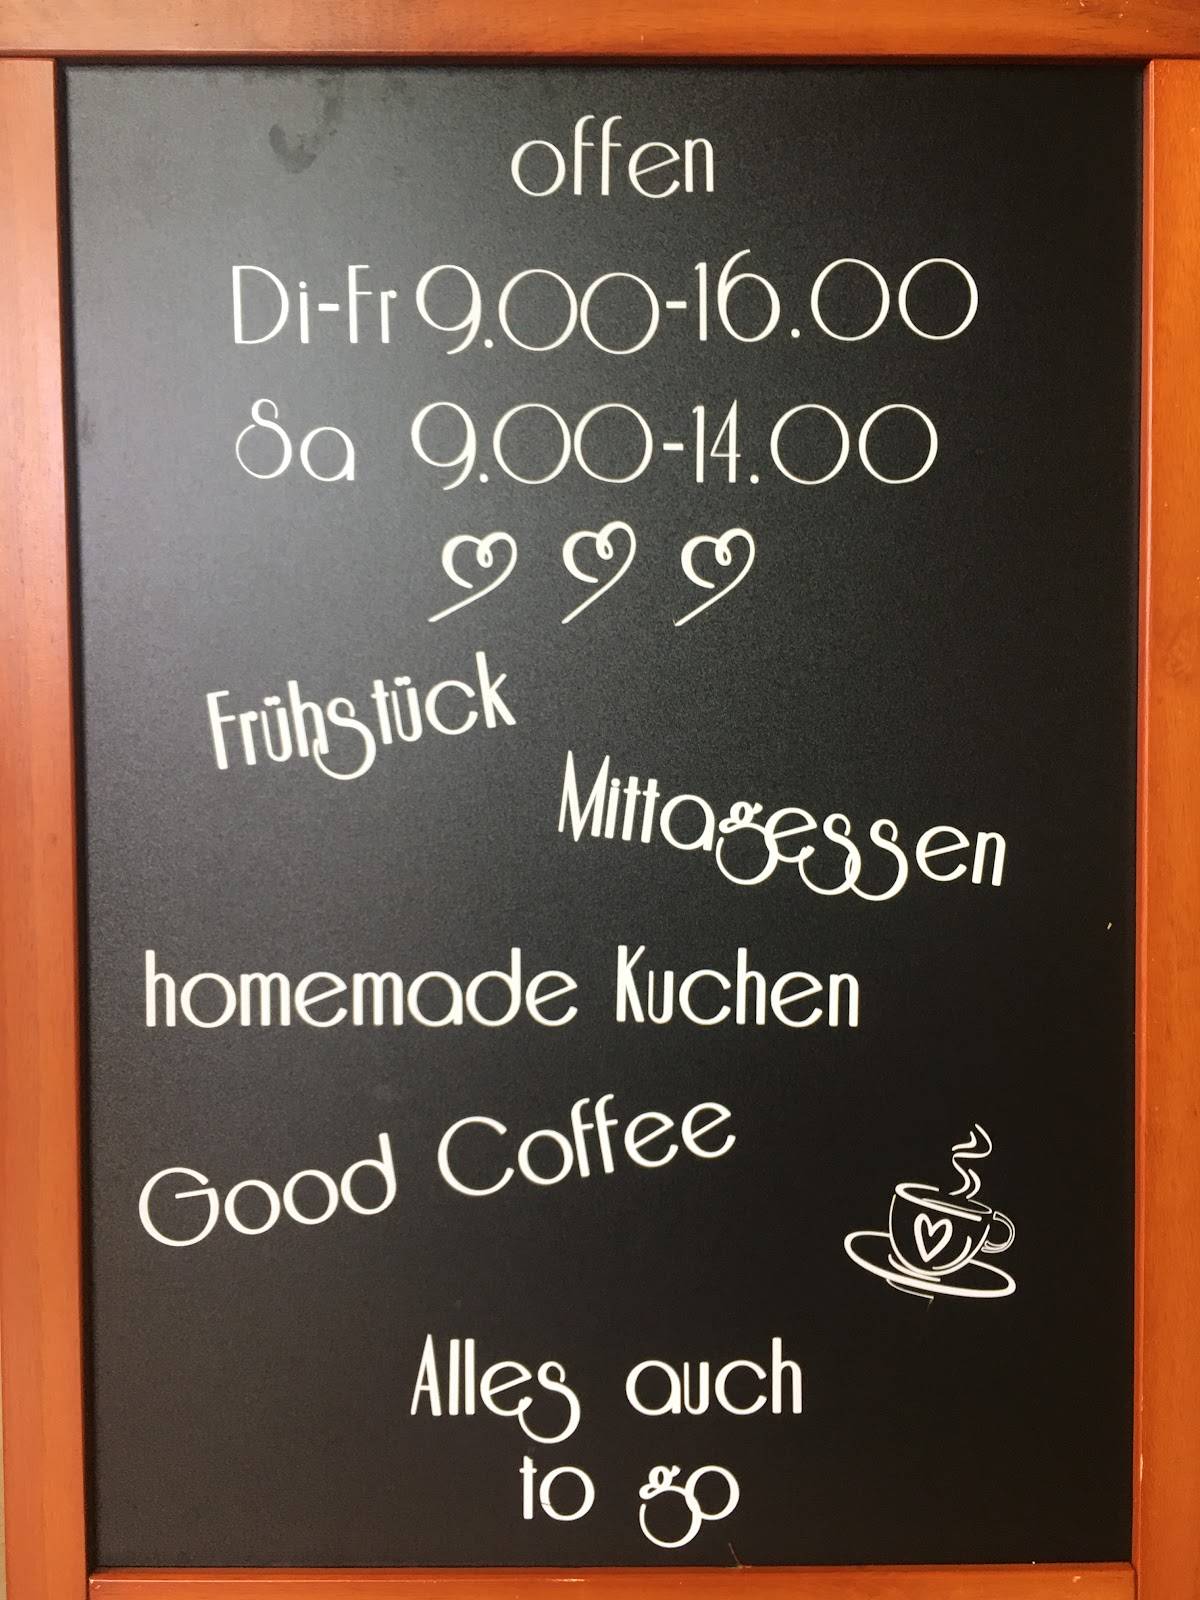 offen
Di-Fr 9.00-16.00
Sa 9.00-14.00
Frühstück
Mittagessen
homemade Kuchen
Good Coffee
Alles auch
to go